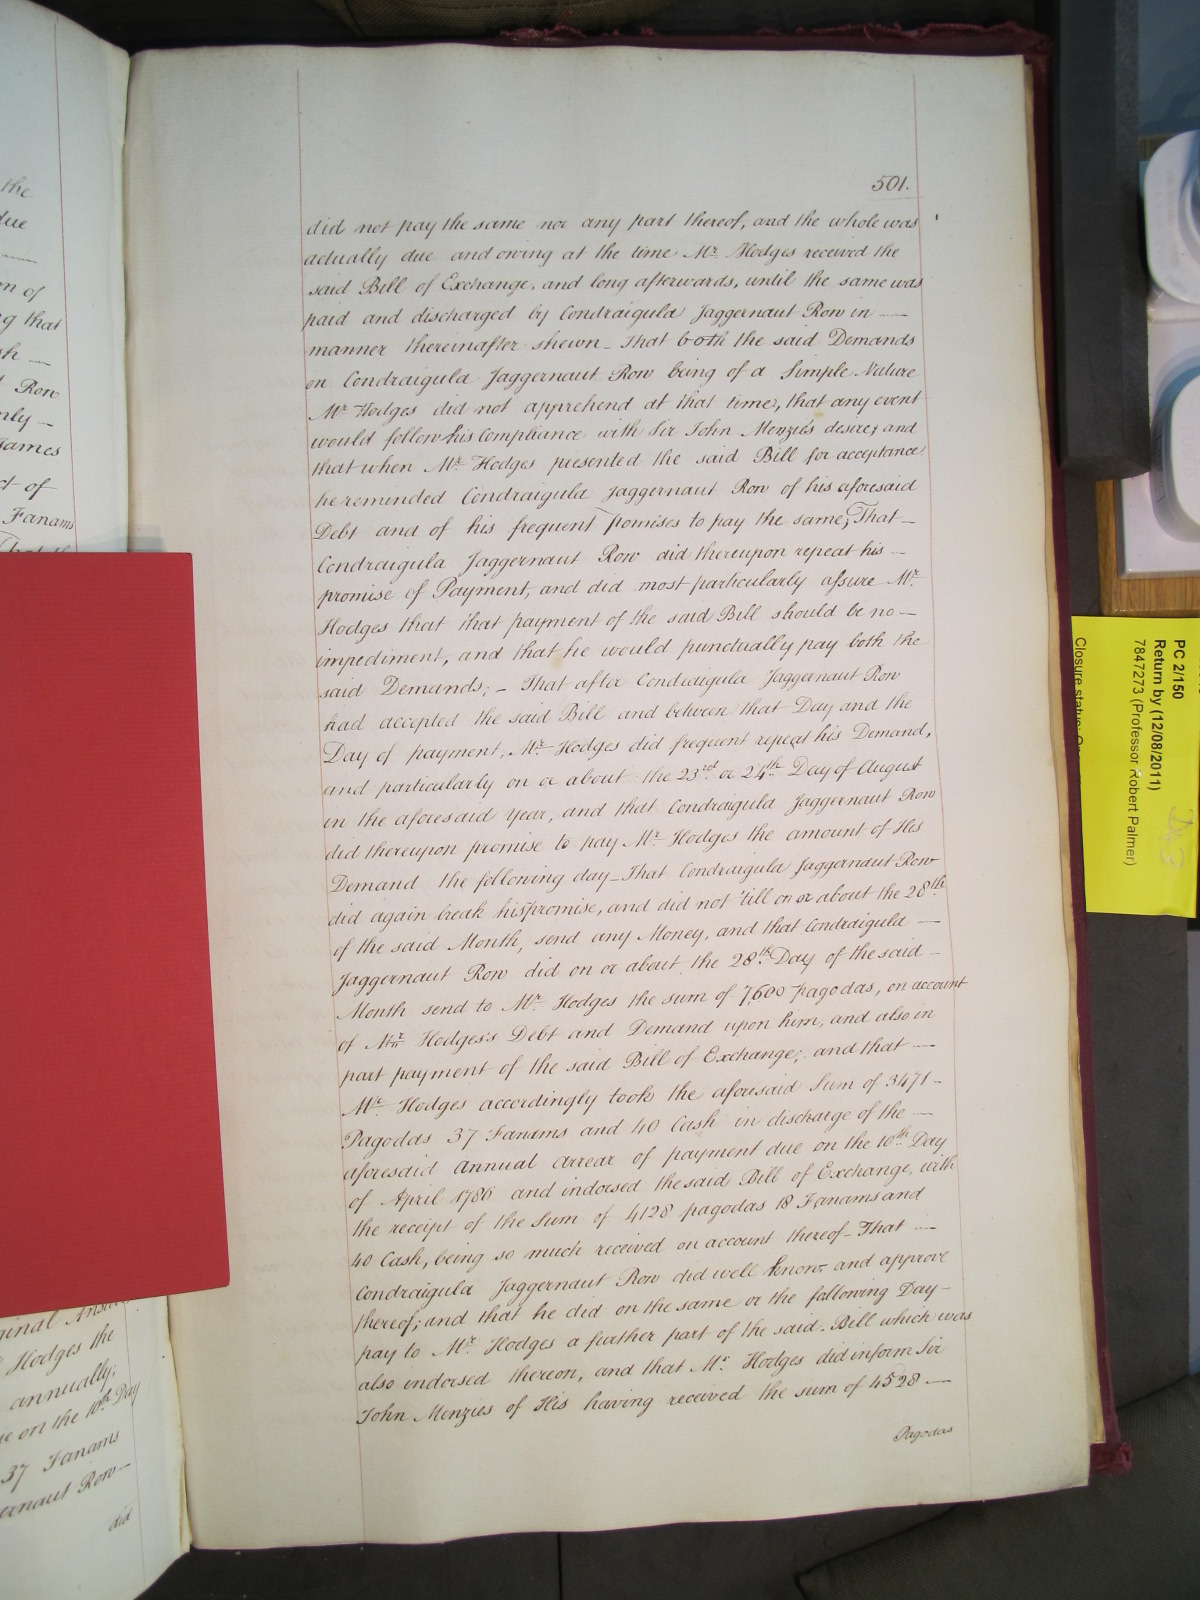 501.
did not pay the same nor any part thereof, and the whole was
actually due and owing at the time Mr. Hodges received the
said Bill of Exchange, and long afterwards, until the same was
paid and discharged by Condraigula Jaggernaut Row in —
manner thereinafter shewn _ That both the said Demands
on Condraigula Jaggernaut Row being of a Simple Nature
Mr. Hodges did not apprehend at that time, that any event
would follow his Compliance with Sir John Menzies desire; and
that when Mr. Hodges presented the said Bill for acceptance
he reminded Condraigula Jaggernaut Row of his aforesaid
Debt and of his frequent promises to pay the same; That _
Condraigula Jaggernaut Row did thereupon repeat his _
promise of Payment, and did most particularly assure Mr.
Hodges that that payment of the said Bill should be no —
impediment, and that he would punctually pay both the
said Demands; _ That after Condraigula Jaggernaut Row
had accepted the said Bill and between that Day and the
Day of payment, Mr. Hodges did frequent repeat his Demand,
and particularly on or about the 23rd. or 24th. Day of August
in the aforesaid Year, and that Condraigula Jaggernaut Row
did thereupon promise to pay Mr. Hodges the amount of His
Demand the following day _ That Condraigula Jaggernaut Row
did again break his promise, and did not 'till on or about the 28th.
of the said Month, send any Money, and that Condraigula —
Jaggernaut Row did on or about the 28th. Day of the said —
Month send to Mr. Hodges the sum of 7,600 pagodas, on account
of Mr. Hodges's Debt and Demand upon him, and also in
part payment of the said Bill of Exchange; and that —
Mr. Hodges accordingly took the aforesaid Sum of 3471 _
Pagodas 37 Fanams and 40 Cash in discharge of the —
aforesaid Annual Arrear of payment due on the 10th. Day
of April 1786 and indorsed the said Bill of Exchange, with
the receipt of the Sum of 4128 pagodas 18 Fanams and
40 Cash, being so much received on account thereof _ That —
Condraigula Jaggernaut Row did well know and approve
thereof; and that he did on the same or the following Day _
pay to Mr. Hodges a further part of the said Bill which was
also indorsed thereon, and that Mr. Hodges did inform Sir
John Menzies of His having received the sum of 4528 —
Pagodas
the
due
on of
that
Row
James
ct of
Fanams
Hodges the
annually;
on the 10th Day
37 Fanams
Row —
did
PC 2/150
Return by (12/08/2011)
7847273 (Professor Robert Palmer)
Closure status: